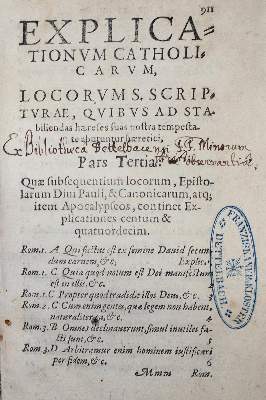 911
EXPLICA-
TIONVM CATHOLI-
CARVM,
LOCORVM S. SCRIP-
TVRAE, QVIBVS AD STA-
biliendas hæreses suas nostra tempesta-
te abutuntur hæretici,
Ex Bibliotheca Dettelbacensi FF. Minorum
Pars Tertia.
Quæ subsequentium locorum, Episto-
larum Diui Pauli, & Canonicarum, atq;
item Apocalypseos, continet Ex-
plicationes centum &
quatuordecim.
Rom. 1. A Qui factus est ex semine Dauid secun-
dum carnem, &c. Explic. 1
Rom. 1. C Quia quod notum est Dei manifestum
est in illis, &c. 2
Rom. 1. C Propter quod tradidit illos Deus, &c. 3
Rom. 2. C Cum enim gentes, quæ legem non habent,
naturaliter ea, &c.
Rom. 3. B Omnes declinauerunt, simul inutiles fa-
cti sunt, &c.
Rom. 3. D Arbitramur enim hominem iustificari
per fidem, &c. 6
Mmm Rom.
FRANZISKANERKLOSTER
DETTELBACH